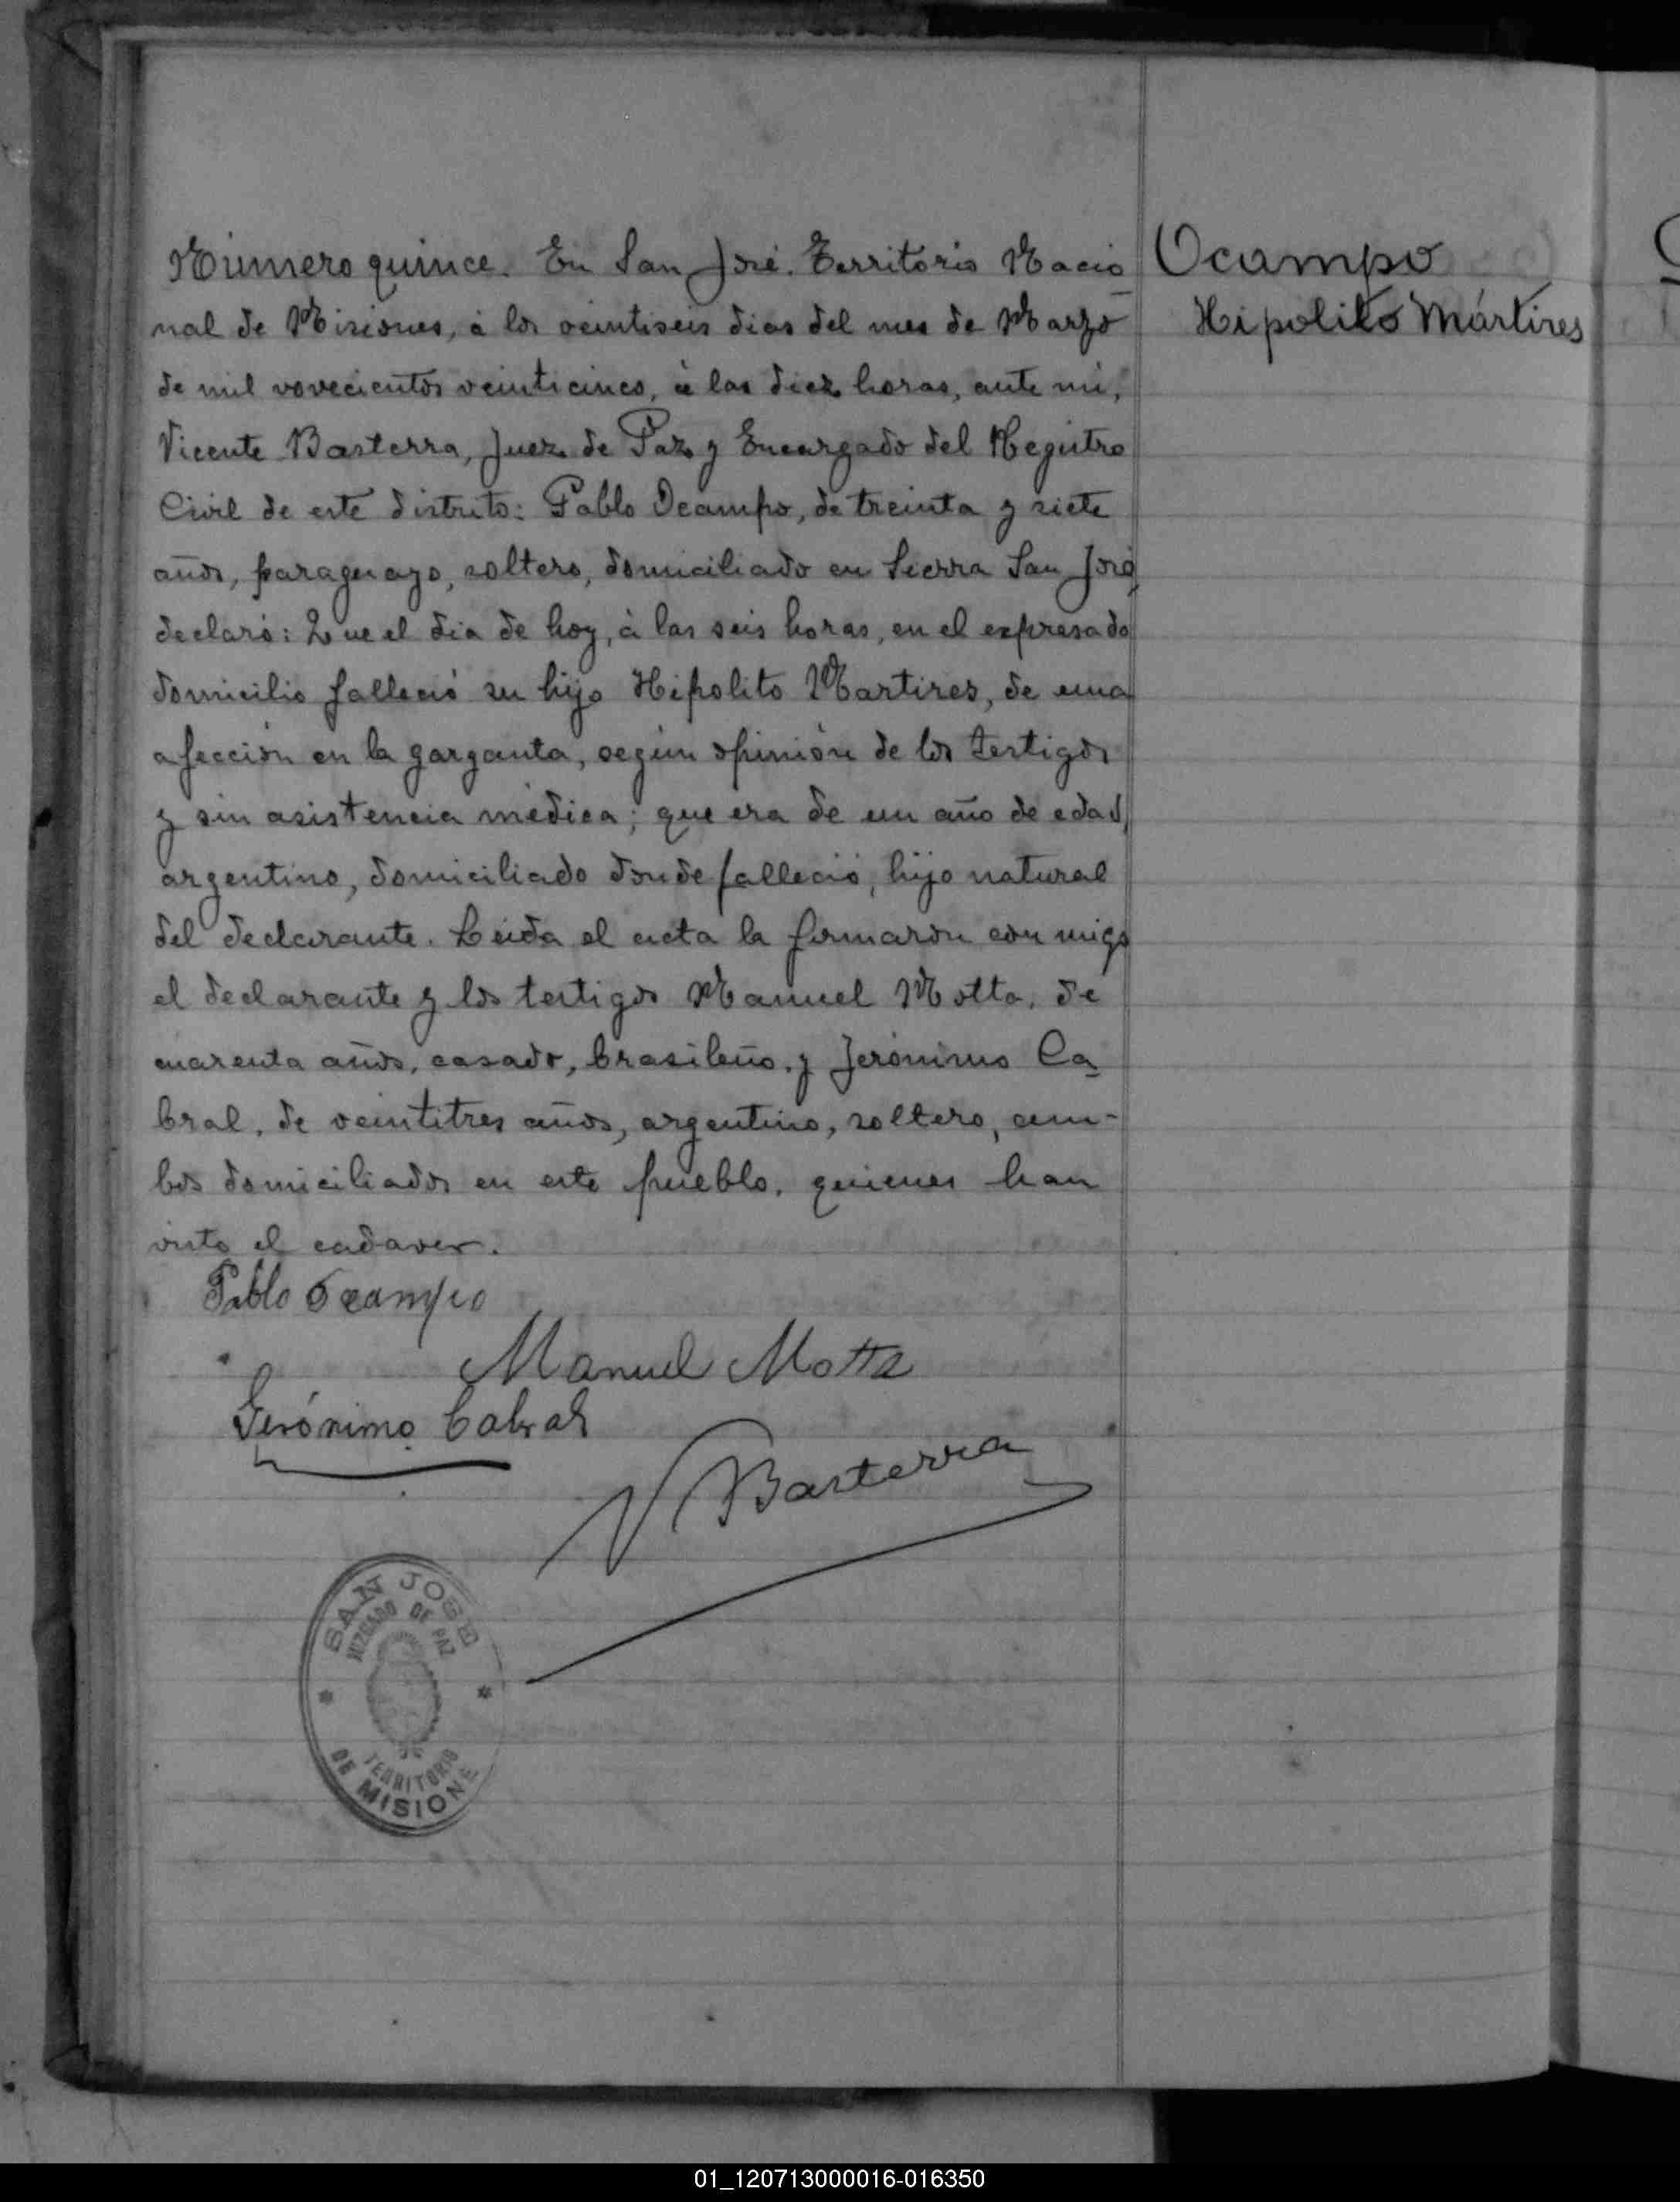 Número quince. En San José. Territorio Nacio
nal de Misiones, á los veintiseis dias del mes de Marzo
de mil novecientos veinticinco, á las diez horas, ante mi,
Vicente Basterra, Juez de Paz y Encargado del Registro
Civil de este distrito: Pablo Ocampo, de treinta y siete
años, paraguayo, soltero, domiciliado en Sierra San José,
declaró: Que el dia de hoy, á las seis horas, en el expresado
domicilio falleció su hijo Hipolito Martires, de una
afección en la garganta, según opinión de los testigos
y sin asistencia médica; que era de un año de edad,
argentino, domiciliado donde falleció, hijo natural
del declarante. Leida el acta la firmaron conmigo
el declarante y los testigos Manuel Motta, de
cuarenta años, casado, brasileño, y Jerónimo Ca
bral, de veintitres años, argentino, soltero, am-
bos domiciliados en este pueblo, quienes han
visto el cadaver.
Pablo Ocampo
Manuel Motta
Gerónimo Cabral
V Basterra
SAN JOSE
JUZGADO DE PAZ
TERRITORIO
DE MISIONE
Ocampo
Hipolito Mártires
01_120713000016-016350